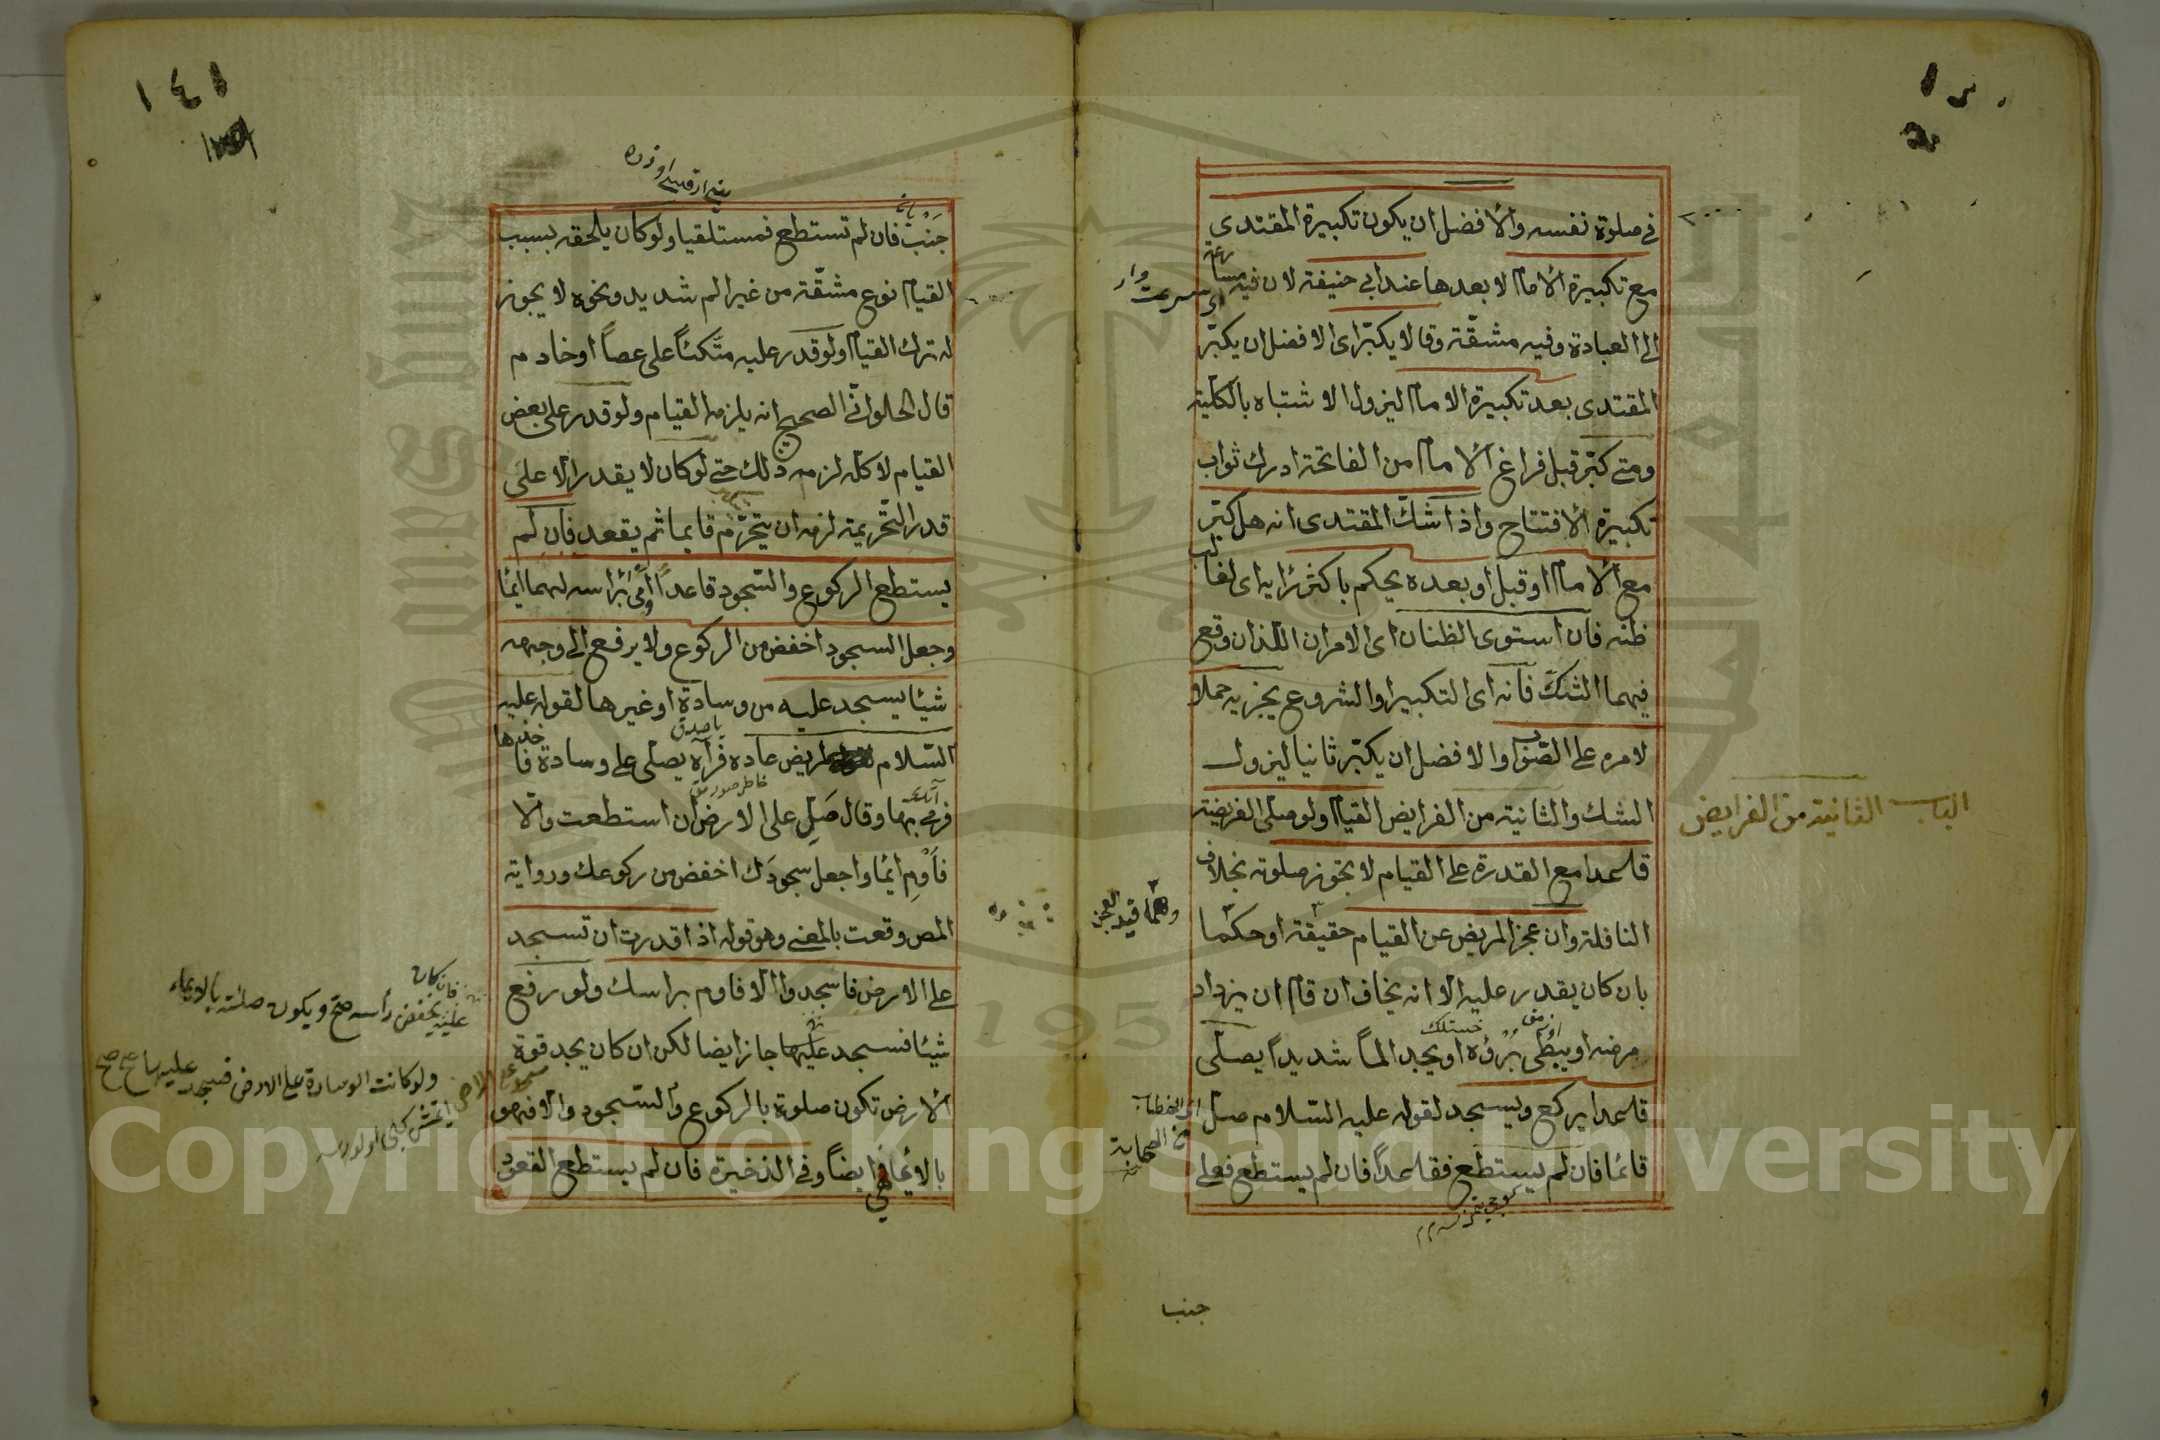 في صلوة نفسه والافضل ان يكون تكبيرة المقتدي
مع تكبيرة الامام لا بعدها عند ابي حنيفة لان فيه مسارعة
الى العبادة وفيه مشقّة وقالا يكبّر اى الافضل ان يكبّر
المقتدى بعد تكبيرة الامام ليزول الاشتباه بالكلّية
ومتى كبّر قبل فراغ الامام من الفاتحة ادرك ثواب
تكبيرة الافتتاح واذا شكّ المقتدى انه هل كبّر
مع الامام او قبل او بعده يحكم باكثر رايه اى لغالب
ظنه فان استوى الظنان اى الامران اللذان وقع
فيهما الشكّ فانه اى التكبير والشروع يجزيه حملا
لامره على الصّواب والافضل ان يكبّر ثانيا ليزول
الشك والثانية من الفرايض القيام ولو صلى الفريضة
قاعدا مع القدرة على القيام لا يجوز صلوته بخلاف
النافلة وان عجز المريض عن القيام حقيقة او حكما
بان كان يقدر عليه الا انه يخاف ان قام ان يزداد
مرضه او يبطى برؤه او يجد الماً شديداً يصلّى
قاعدا يركع ويسجد لقوله عليه السّلام صلّ
قائما فان لم يستطع فقاعداً فان لم يستطع فعلى
الثانية من الفرايض
وهما قيد العجز
الصحابة
جنب
١٤١
جنب فان لم تستطع فمستلقيا ولو كان يلحقه بسبب
القيام نوع مشقّة من غير الم شديد ونحوه لا يجوز
له ترك القيام ولو قدر عليه متّكئاً على عصاً او خادم
قال الحلوانيّ الصحيح انه يلزمه القيام ولو قدر على بعض
القيام لا كلّه لزمه ذلك حتى لو كان لا يقدر الا على
قدر التّحريمة لزمه ان يتحرّم قايما ثم يقعد فان لم
يستطع الركوع والسّجود قاعداً اومى براسه لهما ايمًا
وجعل السجود اخفض من الركوع ولا يرفع الى وجهه
شيئا يسجد عليه من وسادة او غيرها لقوله عليه
السّلام لمريض عاده فرآه يصلّى على وسادة فاخذها
فرمى بها وقال صَلِّ على الارض ان استطعت والّا
فاَوْمِ ايمًا واجعل سجودَك اخفض من ركوعك ورواية
المص وقعت بالمعنى وهو قوله اذا قدرت ان تسجد
على الارض فاسجد والا فاوم براسك ولو رفع
شيئا فسجد عليها جاز ايضا لكن ان كان يجد قوة
الارض تكون صلوة بالركوع والسّجود والا فهو
بالايما ايضاً وفى الذخيرة فان لم يستطع القعود
يخفض رأسه صح ويكون صلته بالايماء
ولو كانت الوسادة على الارض فسجد عليها صح
Copyright © King Saud University
1957